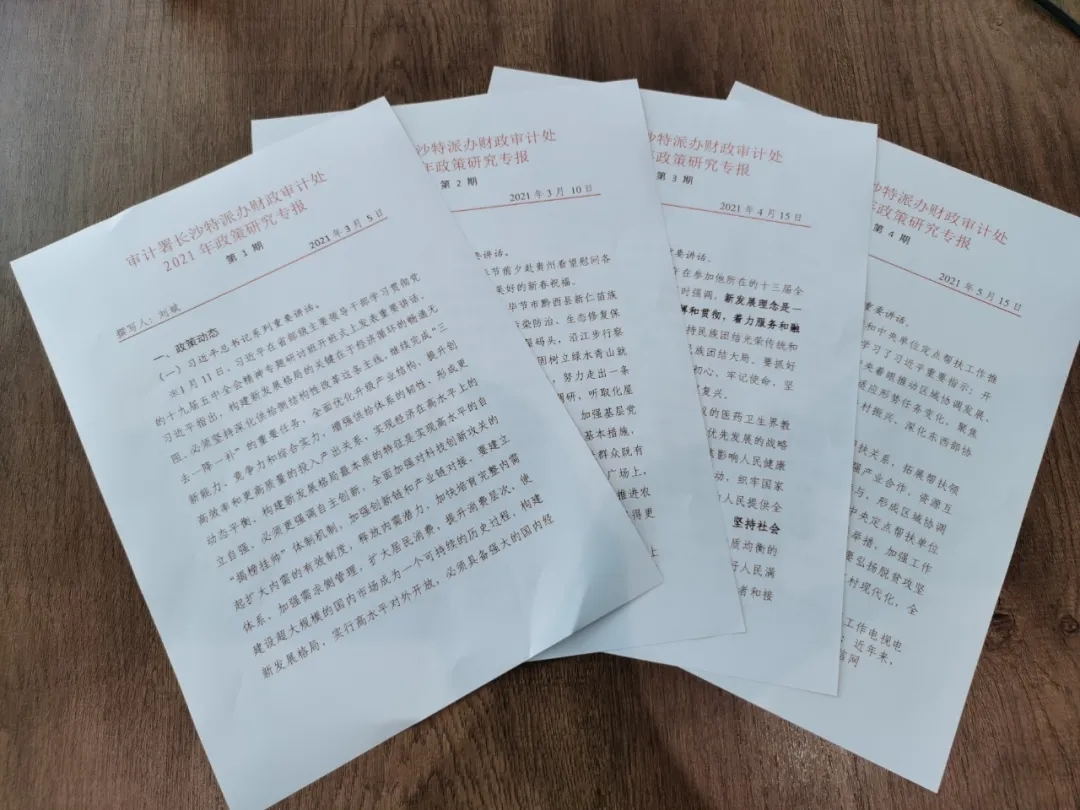 审计署长沙特派办财政审计处
2021 年政策研究专报
第 1 期
2021 年 3 月 5 日
撰写人：刘斌
一、政策动态
（一）习近平总书记系列重要讲话。
1月11日，习近平在省部级主要领导干部学习贯彻党
的十九届五中全会精神专题研讨班开班式上发表重要讲话。
习近平指出，构建新发展格局的关键在于经济循环的畅通无
阻。必须坚持深化供给侧结构性改革这条主线，继续完成“三
去一降一补”的重要任务，全面优化升级产业结构，提升创
新能力、竞争力和综合实力，增强供给体系的韧性，形成更
高效率和更高质量的投入产出关系，实现经济在高水平上的
动态平衡。构建新发展格局最本质的特征是实现高水平的自
立自强，必须更强调自主创新，全面加强对科技创新攻关的
“揭榜挂帅”体制机制，加强创新链和产业链对接。要建立
起扩大内需的有效制度，释放内需潜力，加快培育完整内需
体系，加强需求侧管理，扩大居民消费，提升消费层次，使
建设超大规模的国内市场成为一个可持续的历史过程。构建
新发展格局，实行高水平对外开放，必须具备强大的国内经
沙特派办财政审计处
年政策研究专报
第 2 期
2021 年 3 月 10 日
要讲话。
节前夕赴贵州看望慰问各
美好的新春祝福。
毕节市黔西县新仁苗族
染防治、生态修复保
码头，沿江步行察
固树立绿水青山就
，努力走出一条
调研，听取化屋
加强基层党
基本措施，
群众既有
广场上，
推进农
得更
上
沙特派办财政审计处
年政策研究专报
第 3 期
2021 年 4 月 15 日
要讲话。
在参加他所在的十三届全
时强调，新发展理念是一
解和贯彻，着力服务和融
持民族团结光荣传统和
民族团结大局。要抓好
初心、牢记使命，坚
复兴。
议的医药卫生界教
优先发展的战略
影响人民健康
动，织牢国家
人民提供全
坚持社会
质均衡的
行人民满
者和接
沙特派办财政审计处
年政策研究专报
第 4 期
2021 年 5 月 15 日
重要讲话。
和中央单位定点帮扶工作推
学习了习近平重要指示；开
央着眼推动区域协调发展、
适应形势任务变化，聚焦
村振兴，深化东西部协
扶关系，拓展帮扶领
强产业合作、资源互
与，形成区域协调
中央定点帮扶单位
举措，加强工作
要弘扬脱贫攻坚
村现代化，全
工作电视电
近年来，
信网